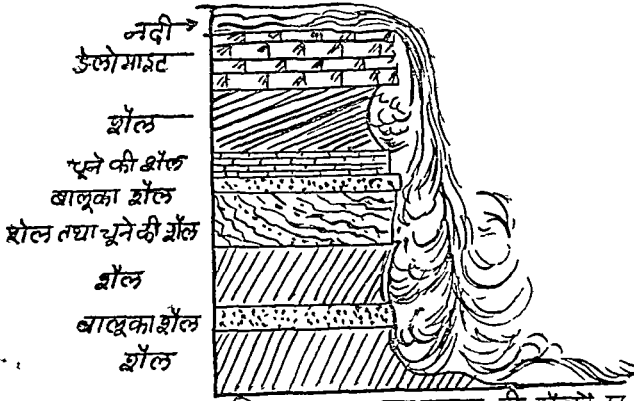 नदी
डोलोमाइट
शैल
चूने की शैल
बालूका शैल
शैल तथा चूने की शैल
शैल
बालूका शैल
शैल